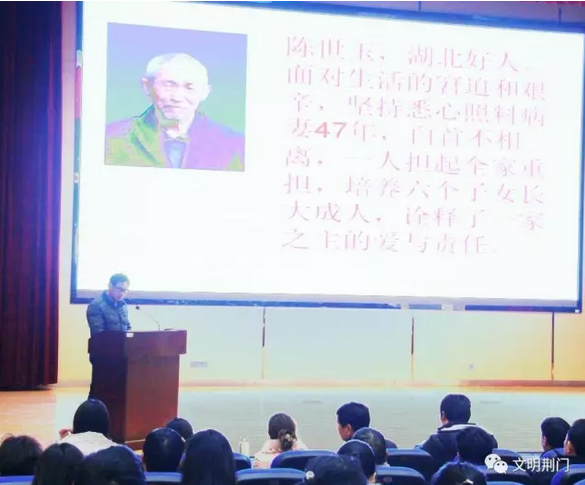 陈世玉，湖北好人。
面对生活的窘迫和艰
辛，坚持悉心照料病
妻47年，白首不相
离，一人担起全家重
担，培养六个子女长
大成人，诠释了一家
之主的爱与责任。
文明荆门